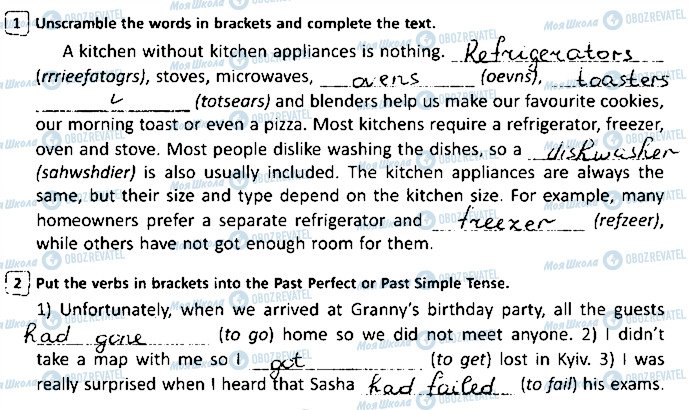 1 Unscramble the words in brackets and complete the text.
A kitchen without kitchen appliances is nothing. Refrigerators
(rrrieefatogrs), stoves, microwaves, ovens (oevns), toasters
(totsears) and blenders help us make our favourite cookies,
our morning toast or even a pizza. Most kitchens require a refrigerator, freezer,
oven and stove. Most people dislike washing the dishes, so a dishwasher
(sahwshdier) is also usually included. The kitchen appliances are always the
same, but their size and type depend on the kitchen size. For example, many
homeowners prefer a separate refrigerator and freezer (refzeer),
while others have not got enough room for them.
2 Put the verbs in brackets into the Past Perfect or Past Simple Tense.
1) Unfortunately, when we arrived at Granny's birthday party, all the guests
had gone (to go) home so we did not meet anyone. 2) I didn't
take a map with me so I got (to get) lost in Kyiv. 3) I was
really surprised when I heard that Sasha had failed (to fail) his exams.